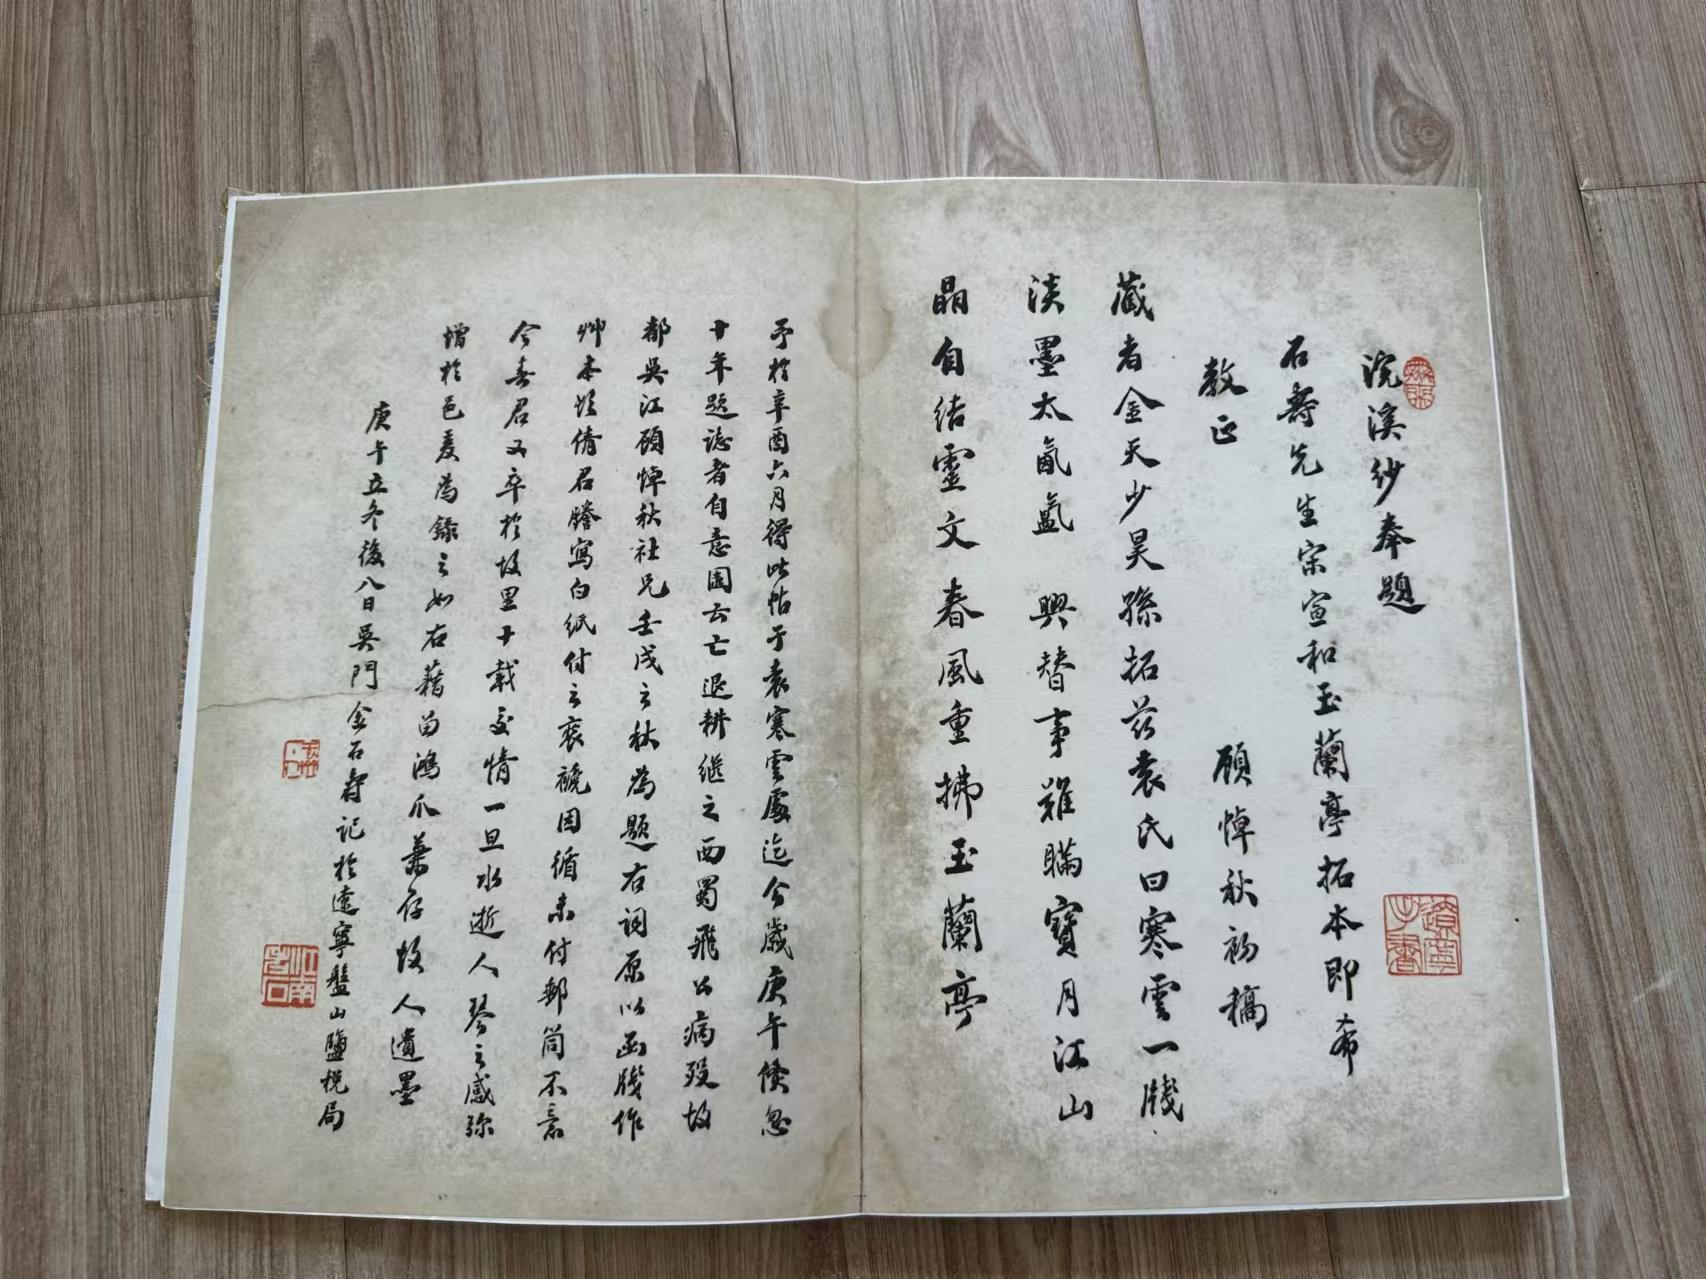 浣溪紗奉題
石壽先生宋宣和玉蘭亭拓本即希
教正
顧悼秋初稿
藏者金天少昊孫拓茲袁氏曰寒雲一牋
淡墨太氤氳 興替事難瞞寶月江山
晶自結靈文春風重拂玉蘭亭
予於辛酉六月得此帖于袁寒雲處迄今歲庚午倏忽
十年題誌者自意園云亡退耕繼之西蜀飛公病歿故
都吳江顧悼秋社兄壬戌之秋為題右詞原以函牋作
艸本堆倩君謄寫白紙付之裘褫因循未付郵筒不意
今春君又卒於故里十載交情一旦水逝人琴之感彌
增於邑爰為錄之如右藉留鴻爪兼存故人遺墨
庚午立冬後八日吳門金石壽記於遼寧盤山鹽稅局